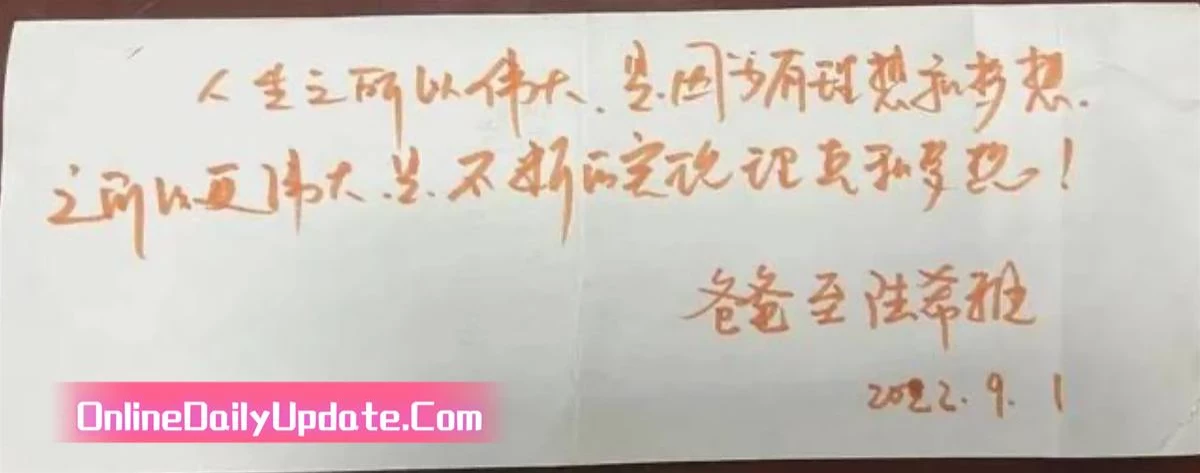 人生之所以伟大、是因为有理想和梦想.
之所以更伟大、是、不断的实现理想和梦想!
爸爸至陆希雅
2022.9.1
OnlineDailyUpdate.Com